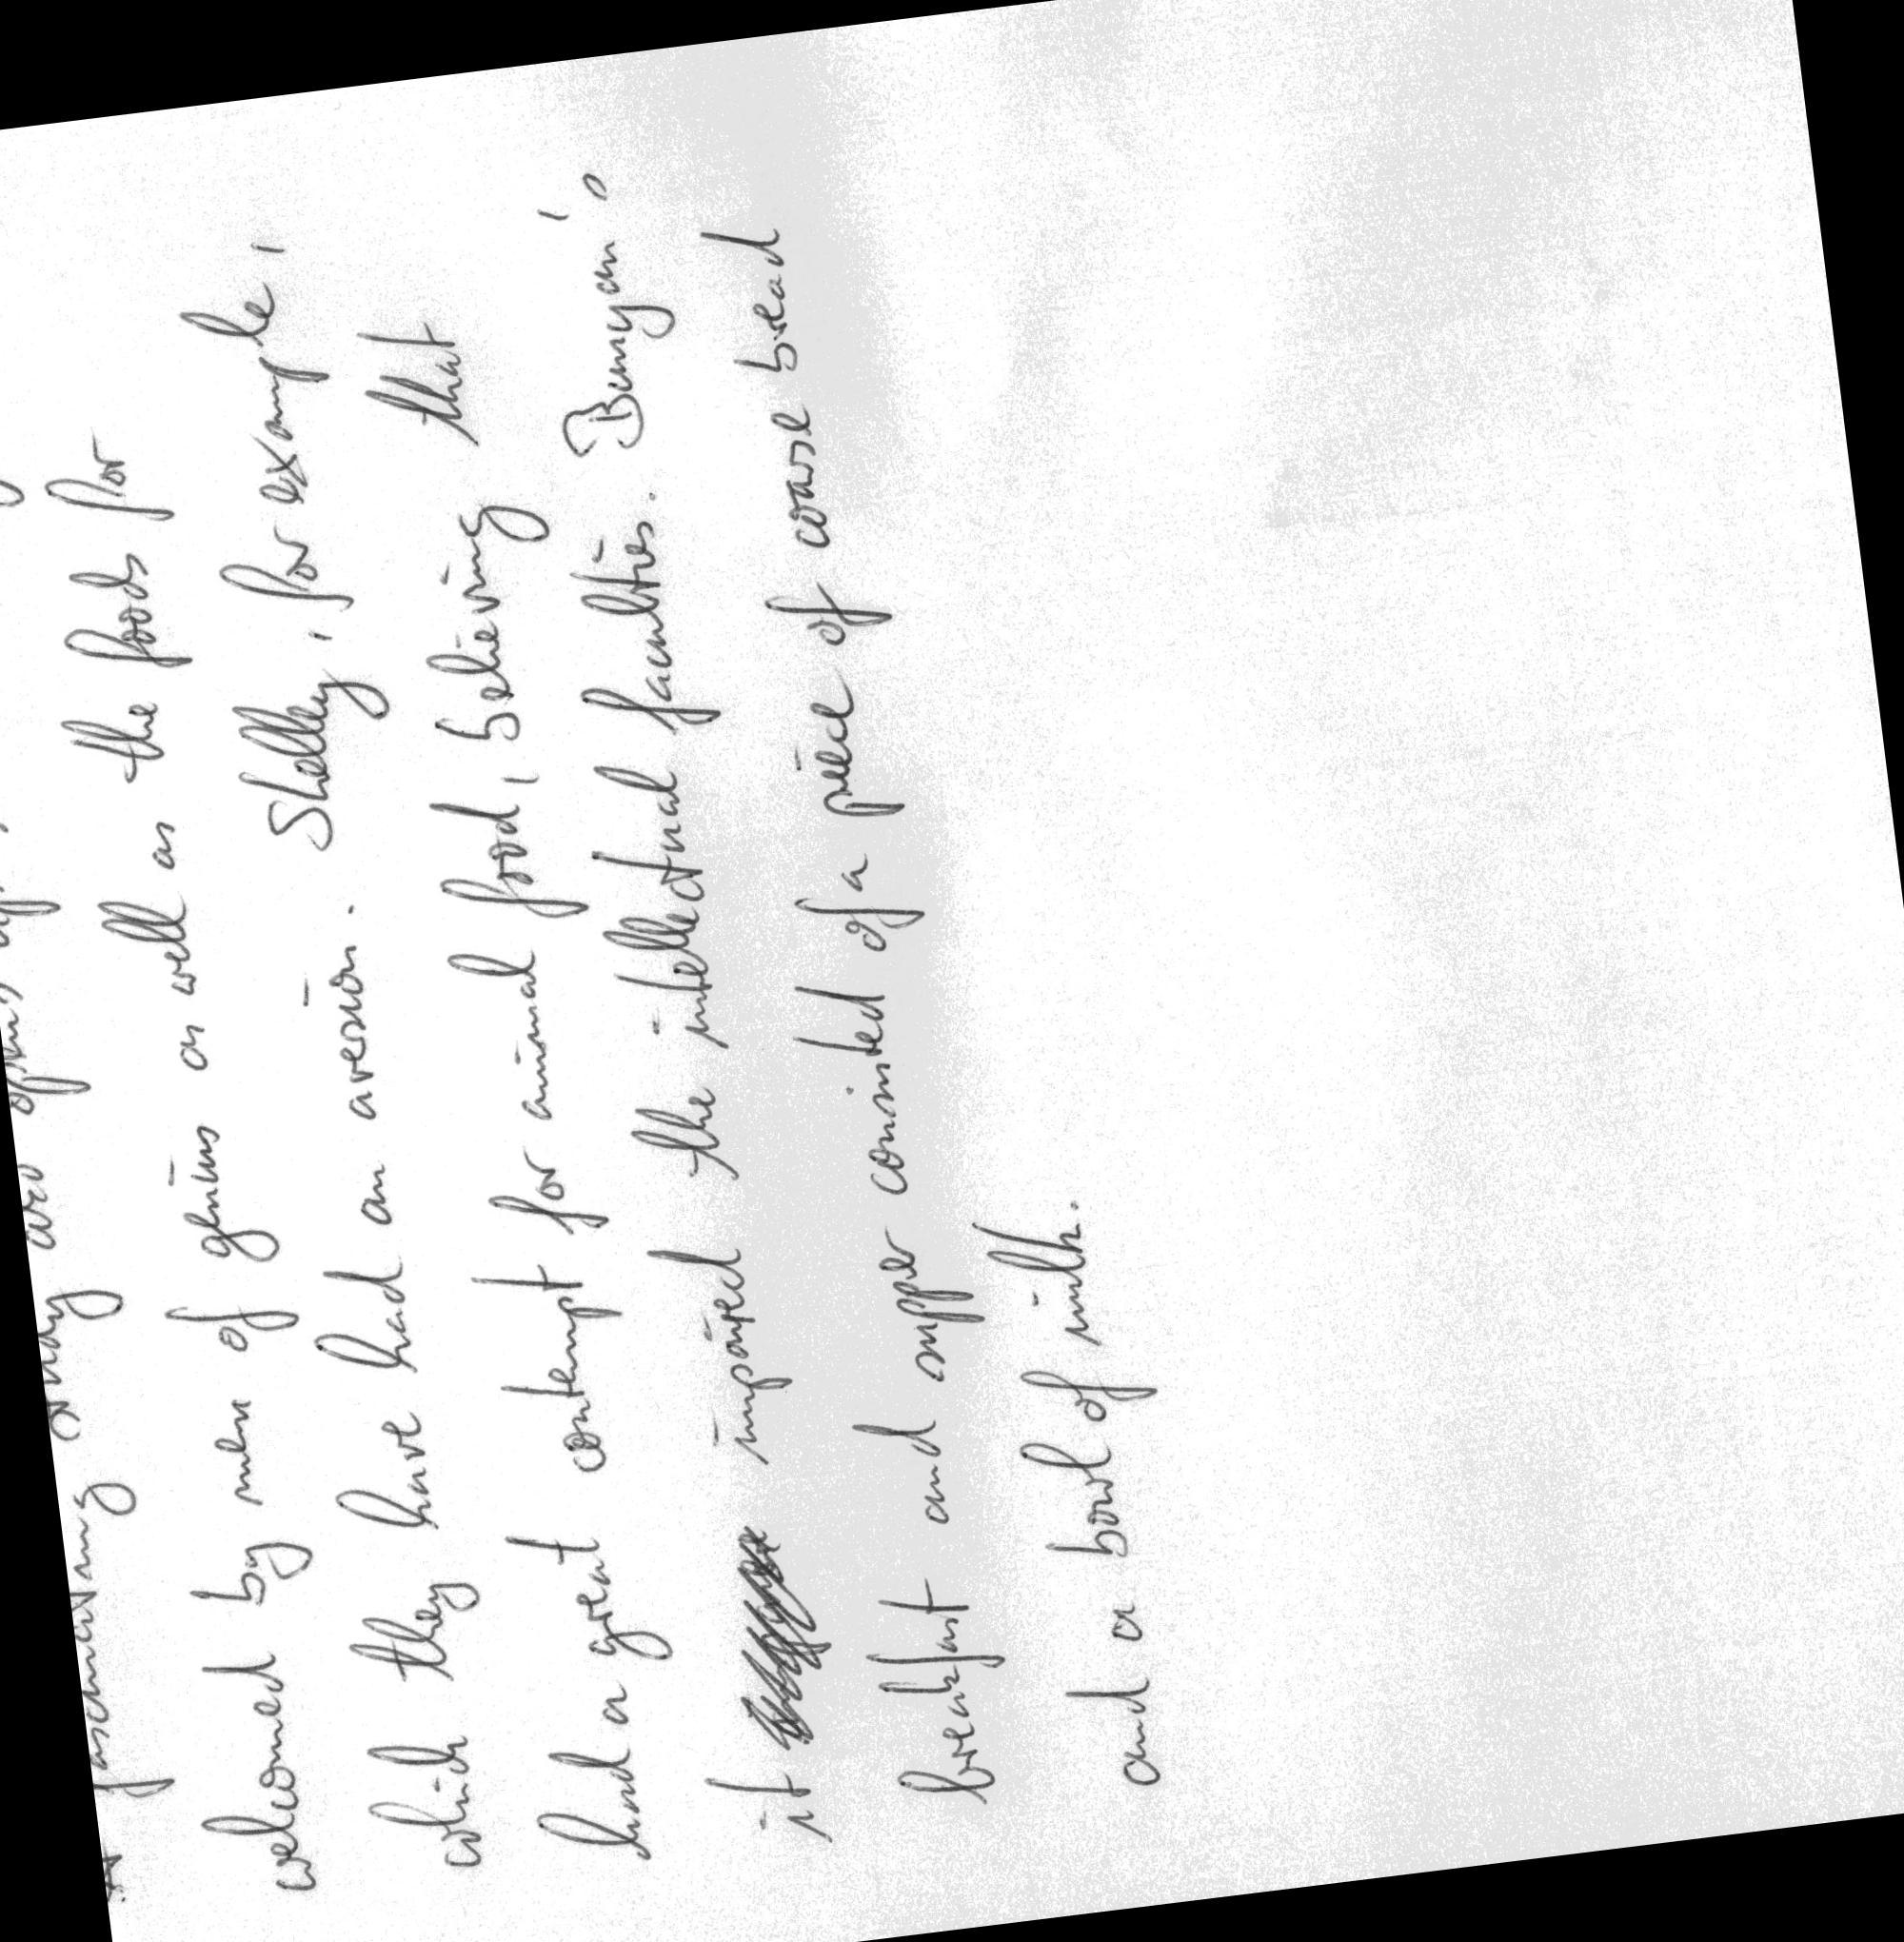 A fascinating study are
welcomed by men of genius as well as the foods for
which they have had an aversion. Shelley, for example,
had a great contempt for animal food, believing that
it impaired the intellectual faculties. Bunyan's
breakfast and supper consisted of a piece of coarse bread
and a bowl of milk.